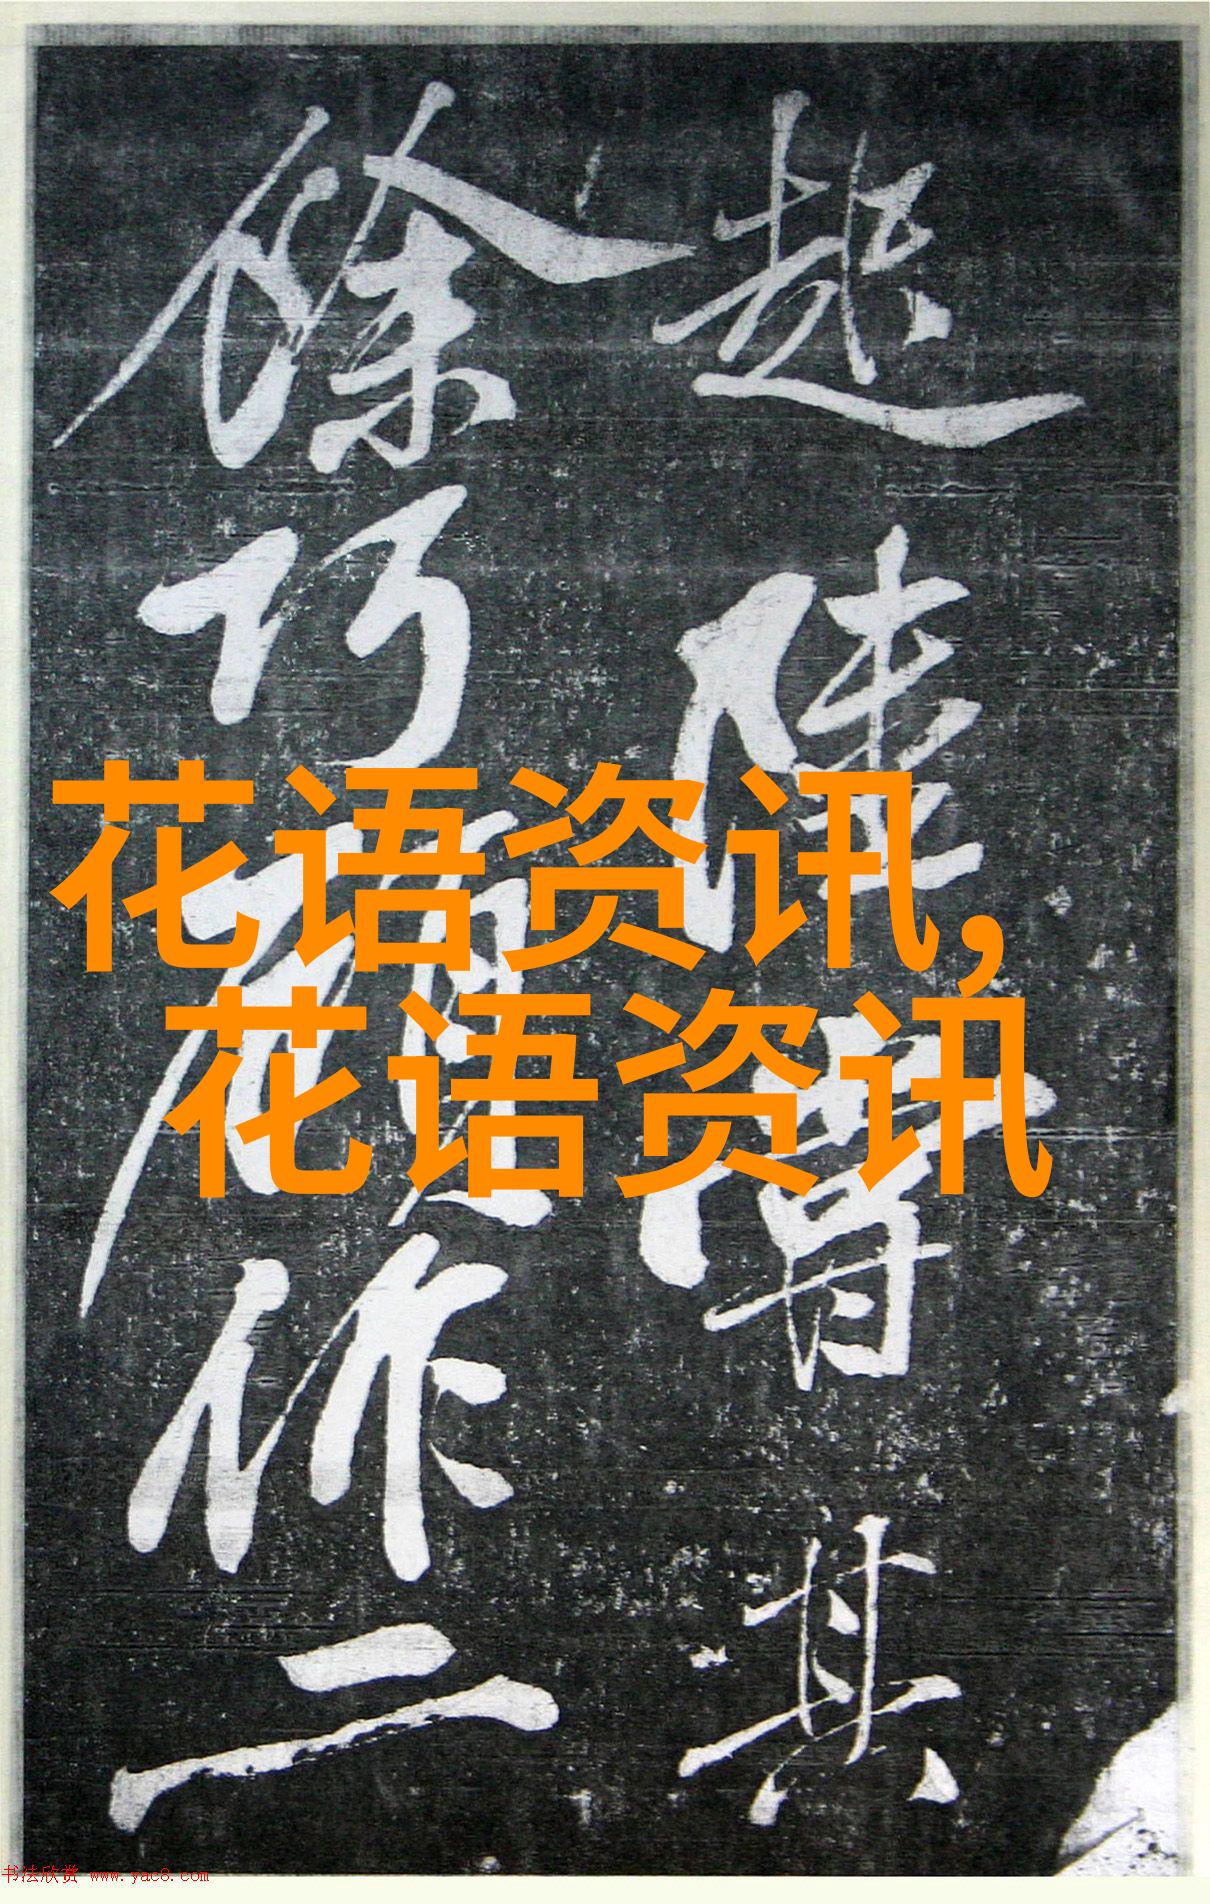 陸其
作二
花语资讯,
花语资讯
书法欣赏 www.yac8.com